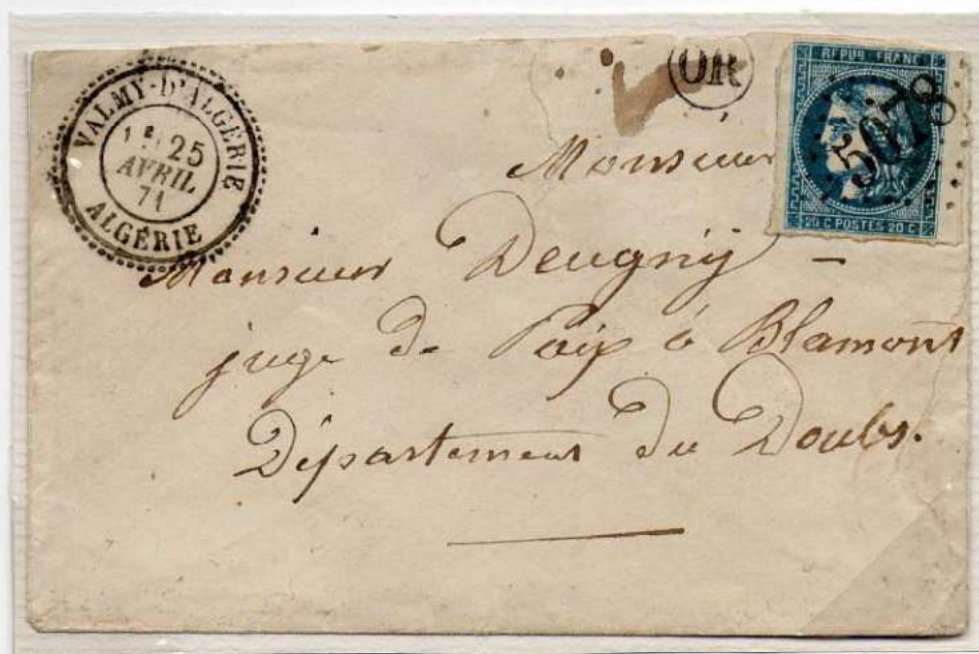 VALMY-D'ALGÉRIE
1E 25
AVRIL
71
ALGÉRIE
OR
REPUB FRANC
5078
20 C POSTES 20 C
Monsieur
Monsieur Deugny -
juge de Paix à Blamont
Département du Doubs.